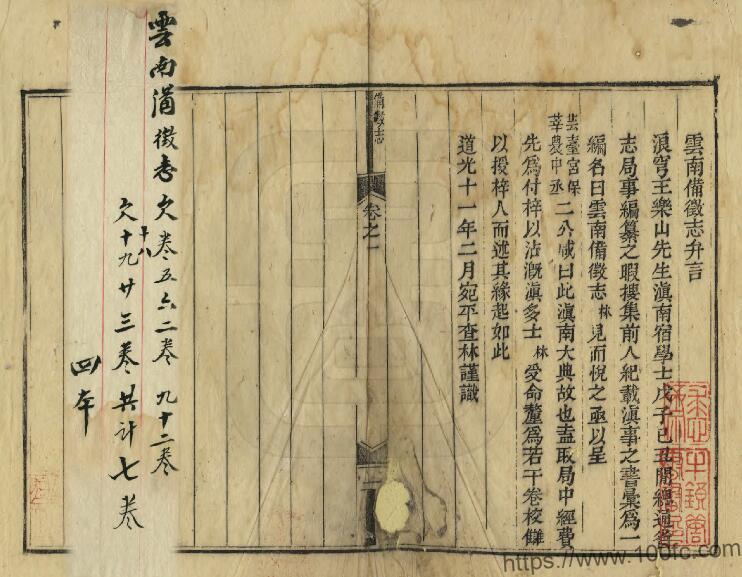 雲南備徵志弁言
浪穹王樂山先生滇南宿學士戊子己丑間總通省
志局事編纂之暇摟集前人紀載滇事之書彙爲一
編名曰雲南備徵志林見而悅之亟以呈
芸臺宮保
莘農中丞
二公咸曰此滇南大典故也盍取局中經費
先爲付梓以沾溉滇多士林受命釐爲若干卷校讎
以授梓人而述其緣起如此
道光十一年二月宛平查林謹識
備徵志
卷之一
雲南備徵志欠卷五六二卷 九十二卷
欠十八十九廿三卷共計七卷
四本
https://www.100fc.com